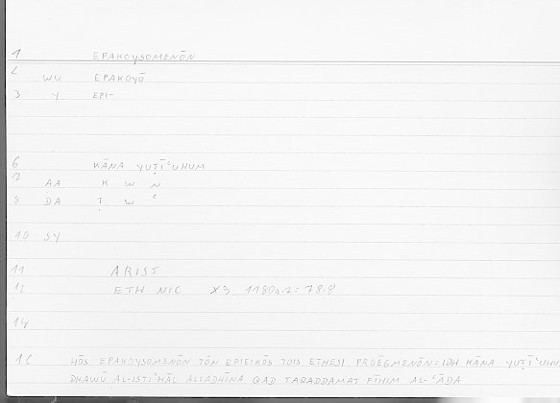 1 EPAKOYSOMENŌN
2 WU EPAKOYŌ
3 Y EPI-
6 KĀNA YUṬĪʿUHUM
7 AA K W N
8 DA Ṭ W ʿ
10 SY
11 ARIST
12 ETH NIC X3 1180a.2: 78.8
14
16 HŌS EPAKOYSOMENŌN TŌN EPIEIKŌS TOIS ETHESI PROĒGMENŌN: IDH KĀNA YUṬĪʿUHUM
DHAWŪ AL-ISTIʾHĀL ALLADHĪNA QAD TAQADDAMAT FĪHIM AL-ʿĀDA